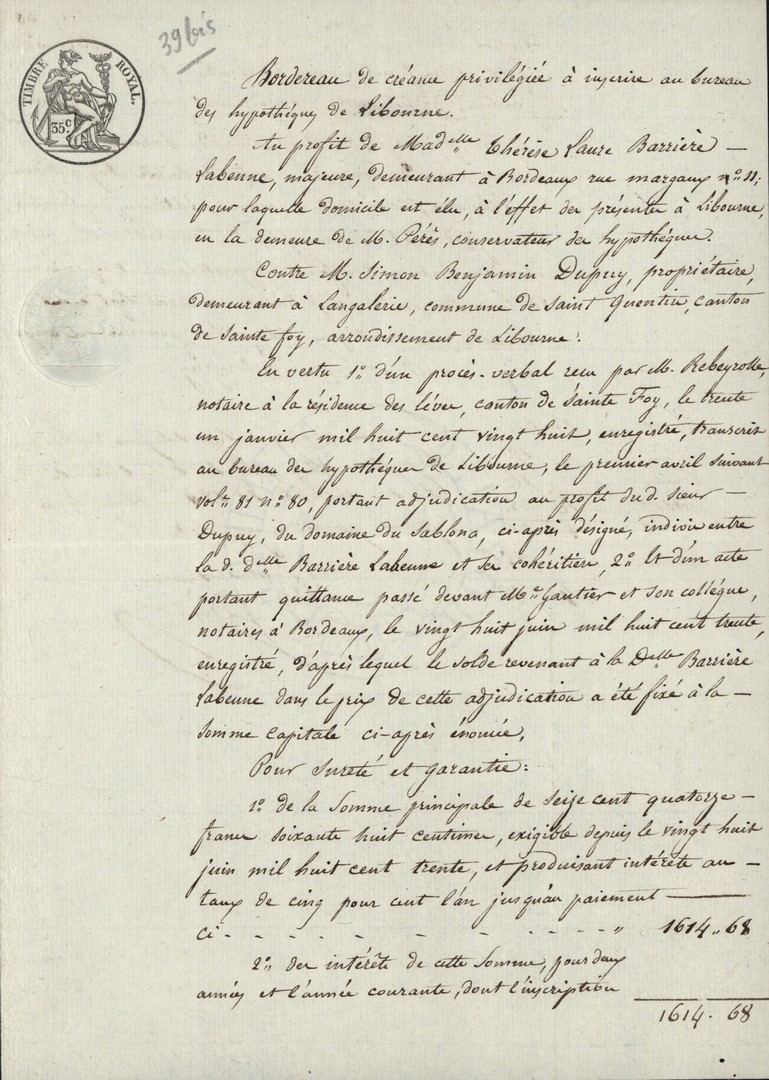 39 bis
TIMBRE ROYAL.
35.c
Bordereau de créance privilégiée à inscrire au bureau
des hypothéques de Libourne.
Au profit de Mad.elle Thérèse Laure Barrière —
Labenne, majeure, demeurant à Bordeaux rue margaux n.o 11;
pour laquelle domicile est élu, à l'effet des présentes à Libourne,
en la demeure de M. Pérès, conservateur des hypothéques.
Contre M. Simon Benjamin Dupuy, propriétaire,
demeurant à Langalerie, commune de Saint Quentin, canton
de Sainte foy, arrondissement de Libourne.
En vertu 1.o d'un procès-verbal reçu par M. Rebeyrolle,
notaire à la résidence des léves, canton de Sainte Foy, le trente
un janvier mil huit cent vingt huit, enregistré, transcrit
au bureau des hypothéques de Libourne, le premier avril suivant
vol.e 81 n.o 80, portant adjudication au profit dud. sieur —
Dupuy, du domaine du Sablona, ci-après désigné, indivis entre
la d. d.elle Barrière Labenne et ses cohéritiers, 2.o Et d'un acte
portant quittance passé devant M.e Gautier et son collégue,
notaires à Bordeaux, le vingt huit juin mil huit cent trente,
enregistré, d'après lequel le solde revenant à la D.elle Barrière
Labenne dans le prix de cette adjudication a été fixé à la —
somme capitale ci-après énoncée,
Pour sureté et garantie:
1.o de la Somme principale de seize cent quatorze —
francs soixante huit centimes, exigible depuis le vingt huit
juin mil huit cent trente, et produisant intérêts au —
taux de cinq pour cent l'an jusqu'au paiement ——
ci - - - - - - - - - - " 1614 .. 68
2.o des intérêts de cette Somme, pour deux
années et l'année courante, dont l'inscription
1614 . 68